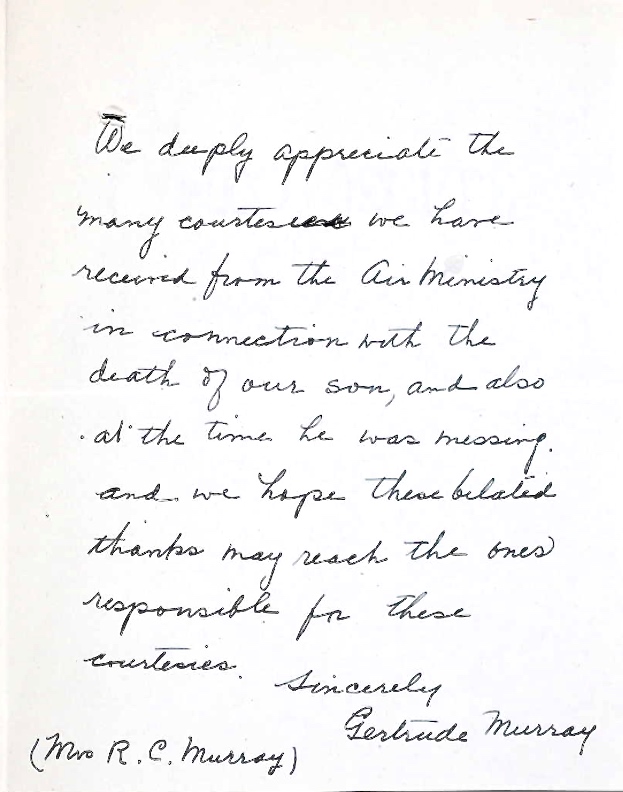 We deeply appreciate the
many courtesies we have
received from the Air Ministry
in connection with the
death of our son, and also
at the time he was missing.
and we hope these belated
thanks may reach the ones
responsible for these
courtesies.
Sincerely
Gertrude Murray
(Mrs R. C. Murray)